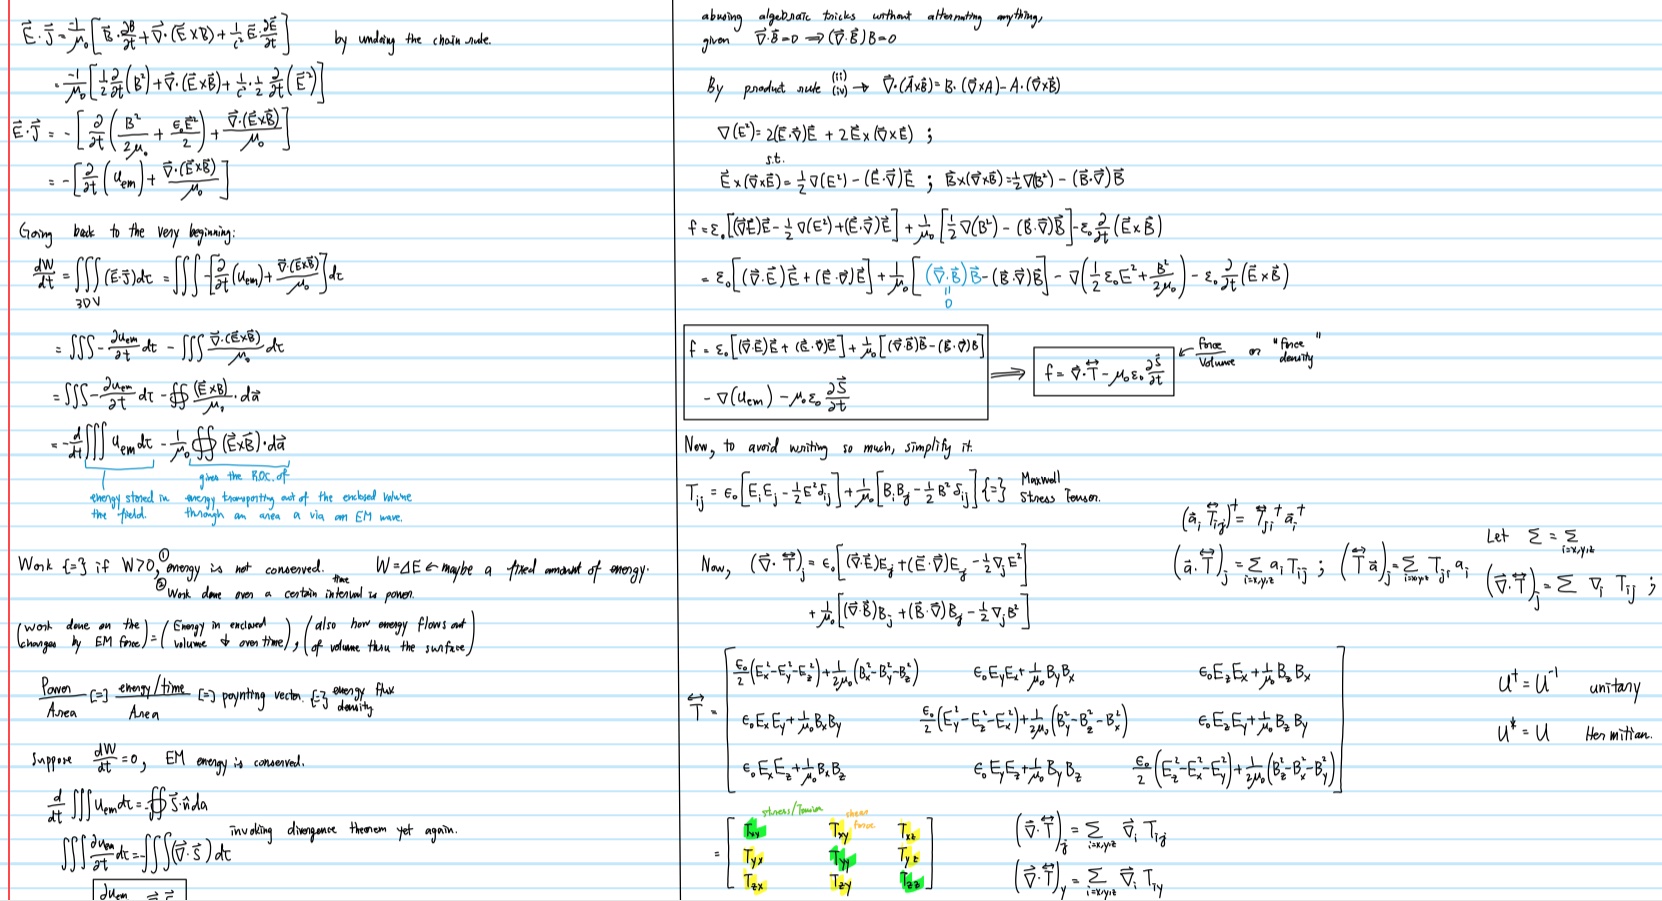 E⃗·J⃗ = -1/μ₀ [B⃗·∂B/∂t + ∇⃗·(E⃗×B⃗) + 1/c² E⃗·∂E⃗/∂t] by undoing the chain rule.
= -1/μ₀ [1/2 ∂/∂t (B²) + ∇⃗·(E⃗×B⃗) + 1/c²·1/2 ∂/∂t (E⃗²)]
E⃗·J⃗ = -[∂/∂t (B²/2μ₀ + ε₀E⃗²/2) + ∇⃗·(E⃗×B⃗)/μ₀]
= -[∂/∂t (u_em) + ∇⃗·(E⃗×B⃗)/μ₀]
Going back to the very beginning:
dW/dt = ∭ (E⃗·J⃗)dτ = ∭ -[∂/∂t (u_em) + ∇⃗·(E⃗×B⃗)/μ₀]dτ
3D V
= ∭ -∂u_em/∂t dτ - ∭ ∇⃗·(E⃗×B⃗)/μ₀ dτ
= ∭ -∂u_em/∂t dτ - ∯ (E⃗×B)/μ₀ · da⃗
= -d/dt ∭ u_em dτ - 1/μ₀ ∯ (E⃗×B⃗)·da⃗
energy stored in the field.
gives the ROC. of energy transporting out of the enclosed volume through an area a via an EM wave.
Work {=} if W>0, ① energy is not conserved. W=ΔE ← maybe a fixed amount of energy.
② Work done over a certain time interval is power.
(work done on the charges by EM force) = (Energy in enclosed volume & over time), (also how energy flows out of volume thru the surface)
Power/Area [=] energy/time/Area [=] poynting vector {=} energy flux density
Suppose dW/dt = 0, EM energy is conserved.
d/dt ∭ u_em dτ = -∯ S⃗·n̂ da
∭ ∂u_em/∂t dτ = -∭ (∇⃗·S⃗) dτ invoking divergence theorem yet again.
∂u_em
abusing algebraic tricks without alternating anything,
given ∇⃗·B⃗=0 ⟹ (∇⃗·B⃗)B=0
By product rule (ii) (iv) → ∇⃗·(A⃗×B⃗)=B·(∇⃗×A)-A·(∇⃗×B⃗)
∇(E²)=2(E⃗·∇⃗)E⃗ + 2E⃗×(∇⃗×E⃗) ;
s.t.
E⃗×(∇⃗×E⃗)=1/2 ∇(E²)-(E⃗·∇⃗)E⃗ ; B⃗×(∇⃗×B⃗)=1/2 ∇(B²)-(B⃗·∇⃗)B⃗
f = ε₀[(∇⃗E⃗)E⃗ - 1/2 ∇(E²)+(E⃗·∇⃗)E⃗] + 1/μ₀ [1/2 ∇(B²) - (B⃗·∇⃗)B⃗] - ε₀ ∂/∂t (E⃗×B⃗)
= ε₀[(∇⃗·E⃗)E⃗ + (E⃗·∇⃗)E⃗] + 1/μ₀ [(∇⃗·B⃗)B⃗ - (B⃗·∇⃗)B⃗] - ∇(1/2 ε₀E² + B²/2μ₀) - ε₀ ∂/∂t (E⃗×B⃗)
=
0
f = ε₀[(∇⃗·E⃗)E⃗ + (E⃗·∇⃗)E⃗] + 1/μ₀ [(∇⃗·B⃗)B⃗ - (B⃗·∇⃗)B⃗]
- ∇(u_em) - μ₀ε₀ ∂S⃗/∂t
⟹ f = ∇⃗·T⃡ - μ₀ε₀ ∂S⃗/∂t ← Force/Volume or "force density"
Now, to avoid writing so much, simplify it.
T_ij = ε₀[E_iE_j - 1/2 E²δ_ij] + 1/μ₀ [B_iB_j - 1/2 B²δ_ij] {=} Maxwell Stress Tensor.
(a⃗_i T⃡_ij)† = T⃡_ji† a⃗_i†
Let Σ = Σ i=x,y,z
Now, (∇⃗·T⃡)_j = ε₀[(∇⃗·E⃗)E_j + (E⃗·∇⃗)E_j - 1/2 ∇_jE²]
+ 1/μ₀ [(∇⃗·B⃗)B_j + (B⃗·∇⃗)B_j - 1/2 ∇_jB²]
(a⃗·T⃡)_j = Σ i=x,y,z a_i T_ij ; (T⃡ a⃗)_j = Σ i=x,y,z T_ji a_i
(∇⃗·T⃡)_j = Σ ∇_i T_ij ;
T⃡ = [ε₀/2 (E_x²-E_y²-E_z²)+1/2μ₀ (B_x²-B_y²-B_z²) ε₀E_yE_x+1/μ₀ B_yB_x ε₀E_zE_x+1/μ₀ B_zB_x
ε₀E_xE_y+1/μ₀ B_xB_y ε₀/2 (E_y²-E_z²-E_x²)+1/2μ₀ (B_y²-B_z²-B_x²) ε₀E_zE_y+1/μ₀ B_zB_y
ε₀E_xE_z+1/μ₀ B_xB_z ε₀E_yE_z+1/μ₀ B_yB_z ε₀/2 (E_z²-E_x²-E_y²)+1/μ₀ (B_z²-B_x²-B_y²)]
U† = U⁻¹ unitary
U* = U Hermitian.
stress/Tension shear force
= [T_xy T_xy T_xz
T_yx T_yy T_yz
T_zx T_zy T_zz]
(∇⃗·T⃡)_j = Σ i=x,y,z ∇⃗_i T_ij
(∇⃗·T⃡)_y = Σ i=x,y,z ∇⃗_i T_iy